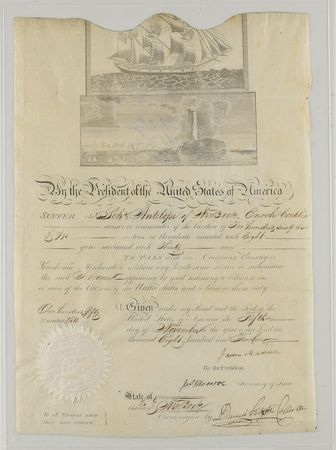 By the President of the United States of America
SUFFER the Schr Antelope of New York Enoch Conklin
master or commander of the burthen of One hundred
tons or thereabouts mounted with Eight
guns navigated with Thirty men
TO PASS with her Company Passengers
Goods and Merchandize without any hinderance seizure or molestation
the said Schooner appearing by good testimony to belong to one
or more of the Citizens of the United States and to him or them only
Given under my Hand and the Seal of the
United States of America the Fifth
day of November in the year of our Lord one
thousand Eight hundred and
One hundred fifty
Number 150
James Madison
By the President
Jas Monroe Secretary of State
State of
District of New York
Countersigned by
To all Persons whom
these may concern